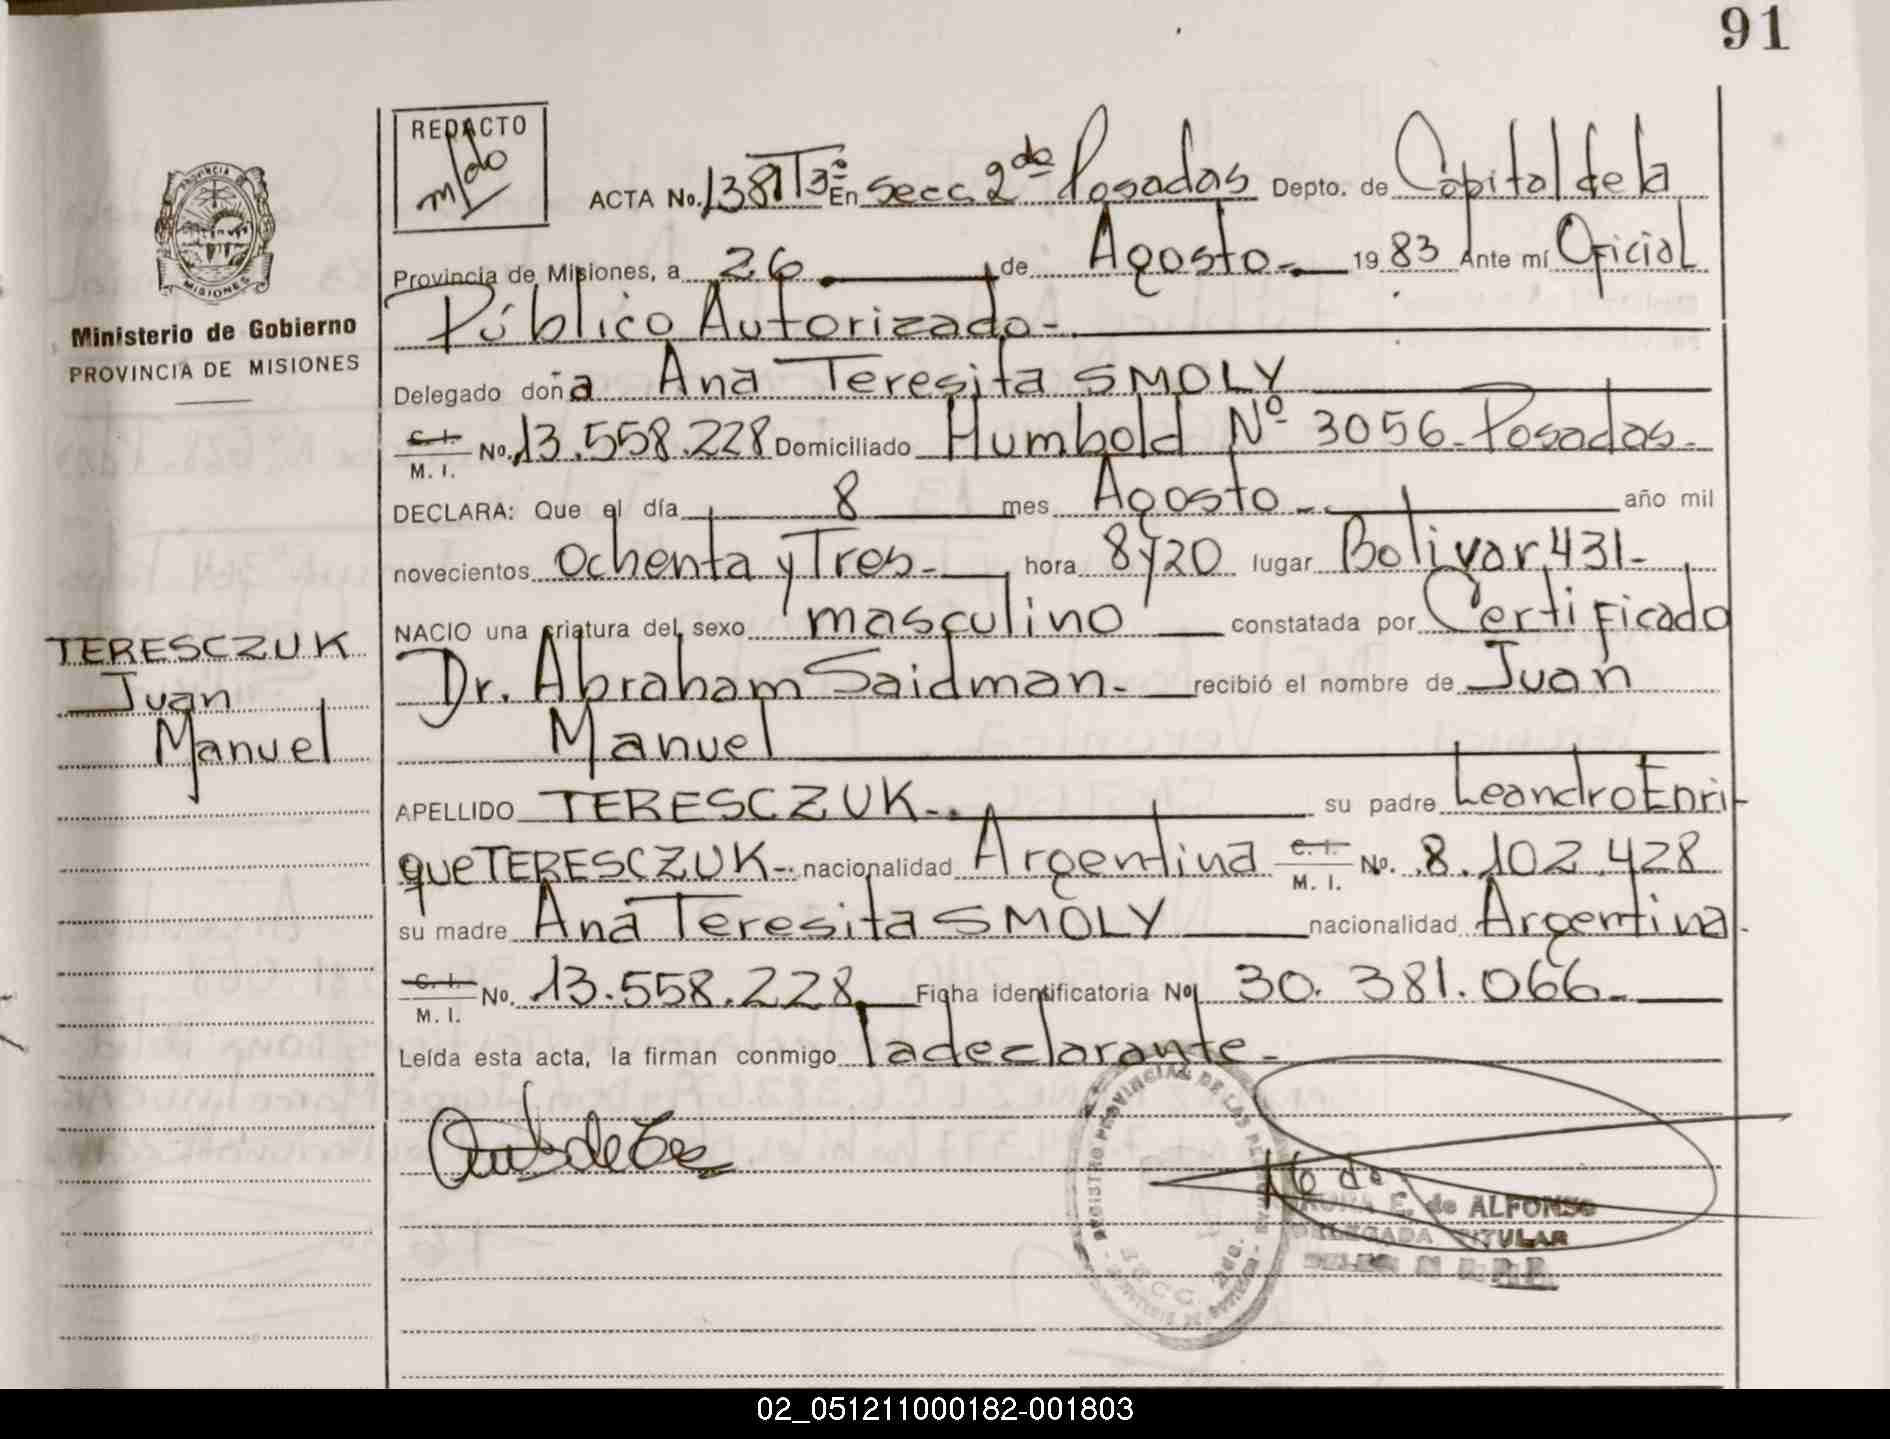 91
REDACTO
PROVINCIA DE
MISIONES
Ministerio de Gobierno
PROVINCIA DE MISIONES
TERESCZUK
Juan
Manuel
ACTA No. 1381 T3º En Secc 2da Posadas Depto. de Capital de la
Provincia de Misiones, a 26 de Agosto.- 1983 Ante mí Oficial
Público Autorizado-.
Delegado doña Ana Teresita SMOLY
C. I. M. I. No. 13.558.228 Domiciliado Humbold Nº 3056.- Posadas.-
DECLARA: Que el día 8 mes Agosto.- año mil
novecientos ochenta y Tres- hora 8y20 lugar Bolivar 431-
NACIO una criatura del sexo "masculino" constatada por Certificado
Dr. Abraham Saidman.- recibió el nombre de Juan
Manuel
APELLIDO TERESCZUK-. su padre Leandro Enri-
que TERESCZUK-. nacionalidad Argentina C. I. M. I. No. 8.102.428
su madre Ana Teresita SMOLY nacionalidad Argentina.
C. I. M. I. No. 13.558.228 Ficha identificatoria No. 30.381.066.-
Leída esta acta, la firman conmigo la declarante.-
REGISTRO PROVINCIAL DE LAS
SECC. 2da.
E. de ALFONSO
DELEGADA TITULAR
02_051211000182-001803